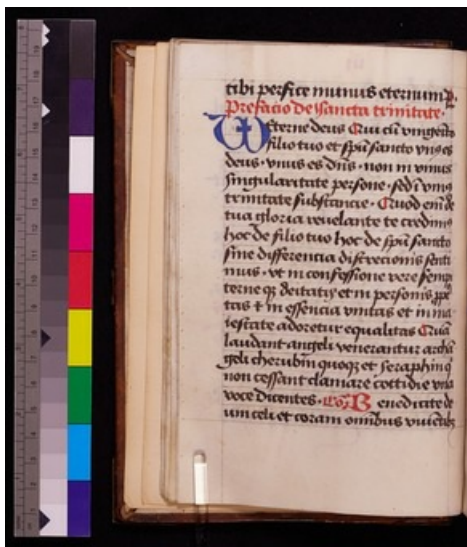 tibi perfice munus eternum P.
Prefacio de sancta trinitate.
Eterne deus Qui cū vnigenito
filio tuo et spū sancto vnus es
deus · vnus es dns · non in vnius
singularitate persone · sed ī vnius
trinitate substancie · Quod em̄ de
tua gloria reuelante te credimus
hoc de filio tuo hoc de spū sancto
sine differencia discrecionis senti
mus · vt in confessione vere sempi
terne qz deitatis et in personis ppe
tas et in essencia vnitas et in ma
iestate adoretur equalitas Quā
laudant angeli venerantur archā
geli cherubin quoqz et seraphin qͥ
non cessant clamare cottidie vna
voce dicentes · Benedicite de
um celi et coram omnibus viuentibz